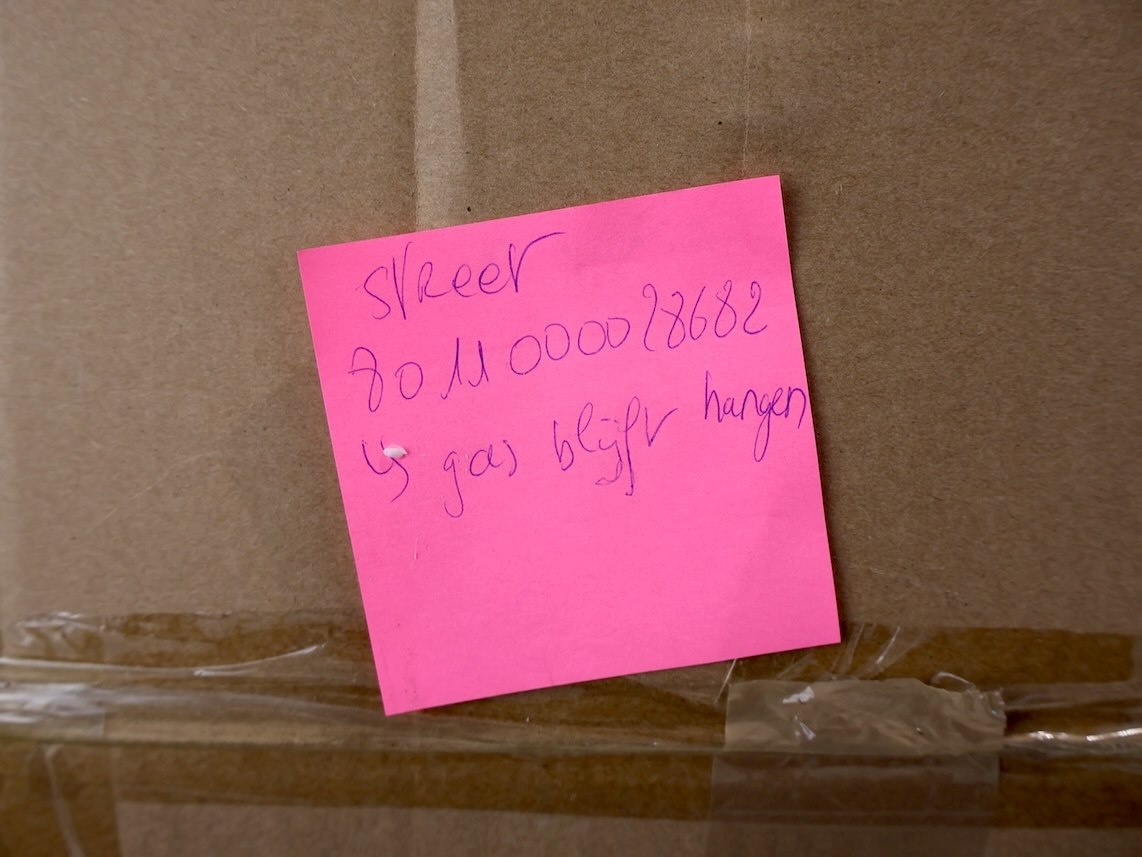 Street
8011000028682
↳ gas blijft hangen